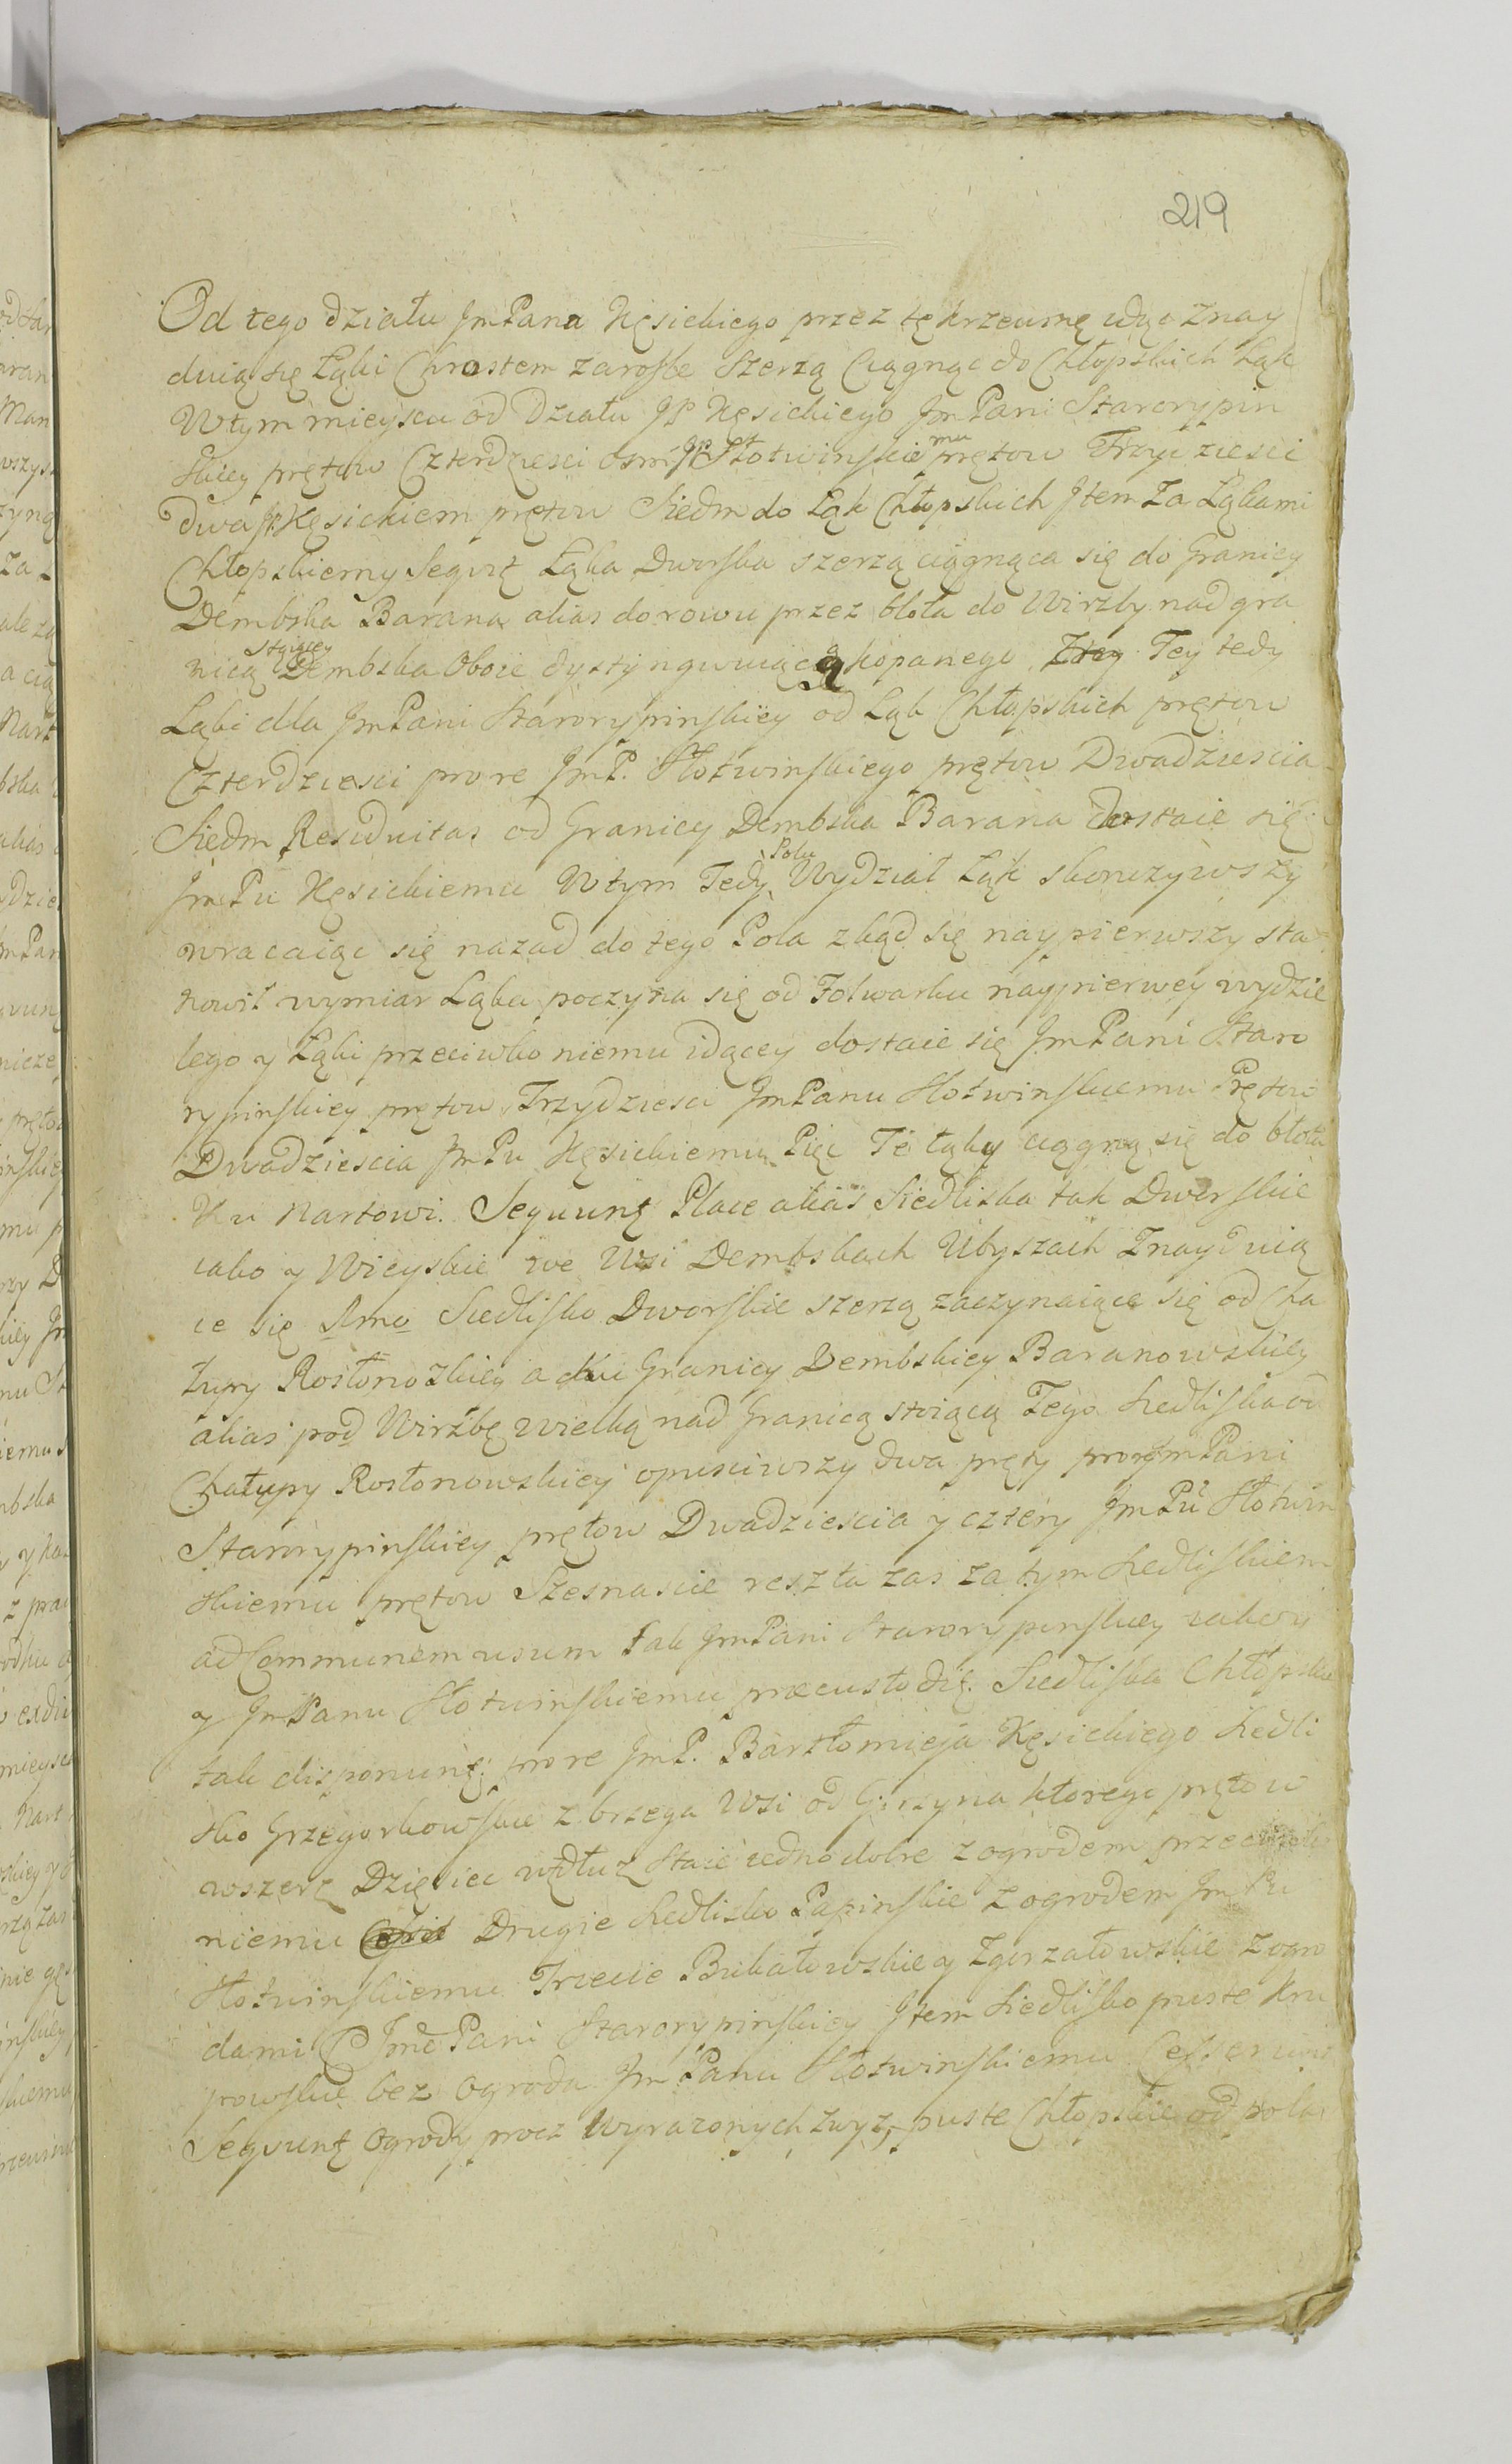 219
Od tego działu JmPana Kęsickiego przez tę krzewinę idąc Znay
duią się Łąki Chrostem zarosłe Szerzą Ciągnąc do Chłopskich Łąk
Wtym mieyscu od Działu JP Kęsickiego Jm Pani Starorypin
skiey prętow Czterdziesci osm JP Słotwinskiemu prętow Trzydziesci
dwa JP Kęsickiem prętow Siedm do Łąk Chłopskich Jtem Za Łąkami
Chłopskiemy Seqvit Łąka Dworska szerzą ciągnąca się do Granicy
Dembska Barana alias do rowu przez błota do Wirzby nad gra
nicą stoiącey Dembska Oboie dystyngwuiącą kopanego Tey tedy
Łąki dla JmPani Starorypinskiey od Łąk Chłopskich prętow
Czterdziesci pro re JmP. Słotwinskiego prętow Dwadziescia
Siedm Residuitas od Granicy Dembska Barana dostaie się
JmPu Kęsickiemu Wtym Tedy Polu Wydział Łąk skonczywszy
wracaiąc się nazad do tego Pola zkąd się naypierwszy sta
nowił wymiar Łąka poczyna się od Folwarku naypierwey wydzie
lego y Łąki przeciwko niemu idącey dostaie się JmPani Staro
rypinskiey prętow Trzydziesci JmPanu Słotwinskiemu Prętow
Dwadziescia JmPu Kęsickiemu Pięc Te łąky ciągną się do błota
Ku Nartowi. Sequunt Place alias Siedliska tak Dworskie
iako y Wieyskie we Wsi Dembskach Ubyszach Znayduią
ce się Imo Siedlisko Dworskie szerzą zaczynaiące się od Cha
łupy Rosłonozkiey a ku Granicy Dembskiey Baranowskiey
alias pod Wirzbę wielką nad Granicą stoiącą Tego Siedliska od
Chałupy Rosłonowskiey opusciwszy dwa pręty pro re JmPani
Starorypinskiey prętow Dwadziescia y cztery JmPu Słotwin
skiemu prętow Szesnascie reszta zas za tym Siedliskiem
ad Communem usum tak JmPani Starorypinskiey iako y
y JmPanu Słotwinskiemu praecustodit. Siedliska Chłopskie
tak disponunt: pro re JmP. Bartłomieja Kęsickiego Siedli
sko Grzegorkowskie z brzega Wsi od Gużyna ktorego prętow
wszerz Dzięsiec wzdłuz Staie iedno dobre z ogrodem przeciwko
niemu Drugie Siedlisko Papinskie z ogrodem JmPu
Słotwinskiemu Trzecie Bukatowskie y Zgorzałowskie z ogro
dami Jmc Pani Starorypinskiey Jtem Siedlisko puste Kru
powskie bez ogroda Jm Panu Słotwinskiemu
Seqvunt Ogrody procz Wyrazonych zwyz, puste Chłopskie od pola